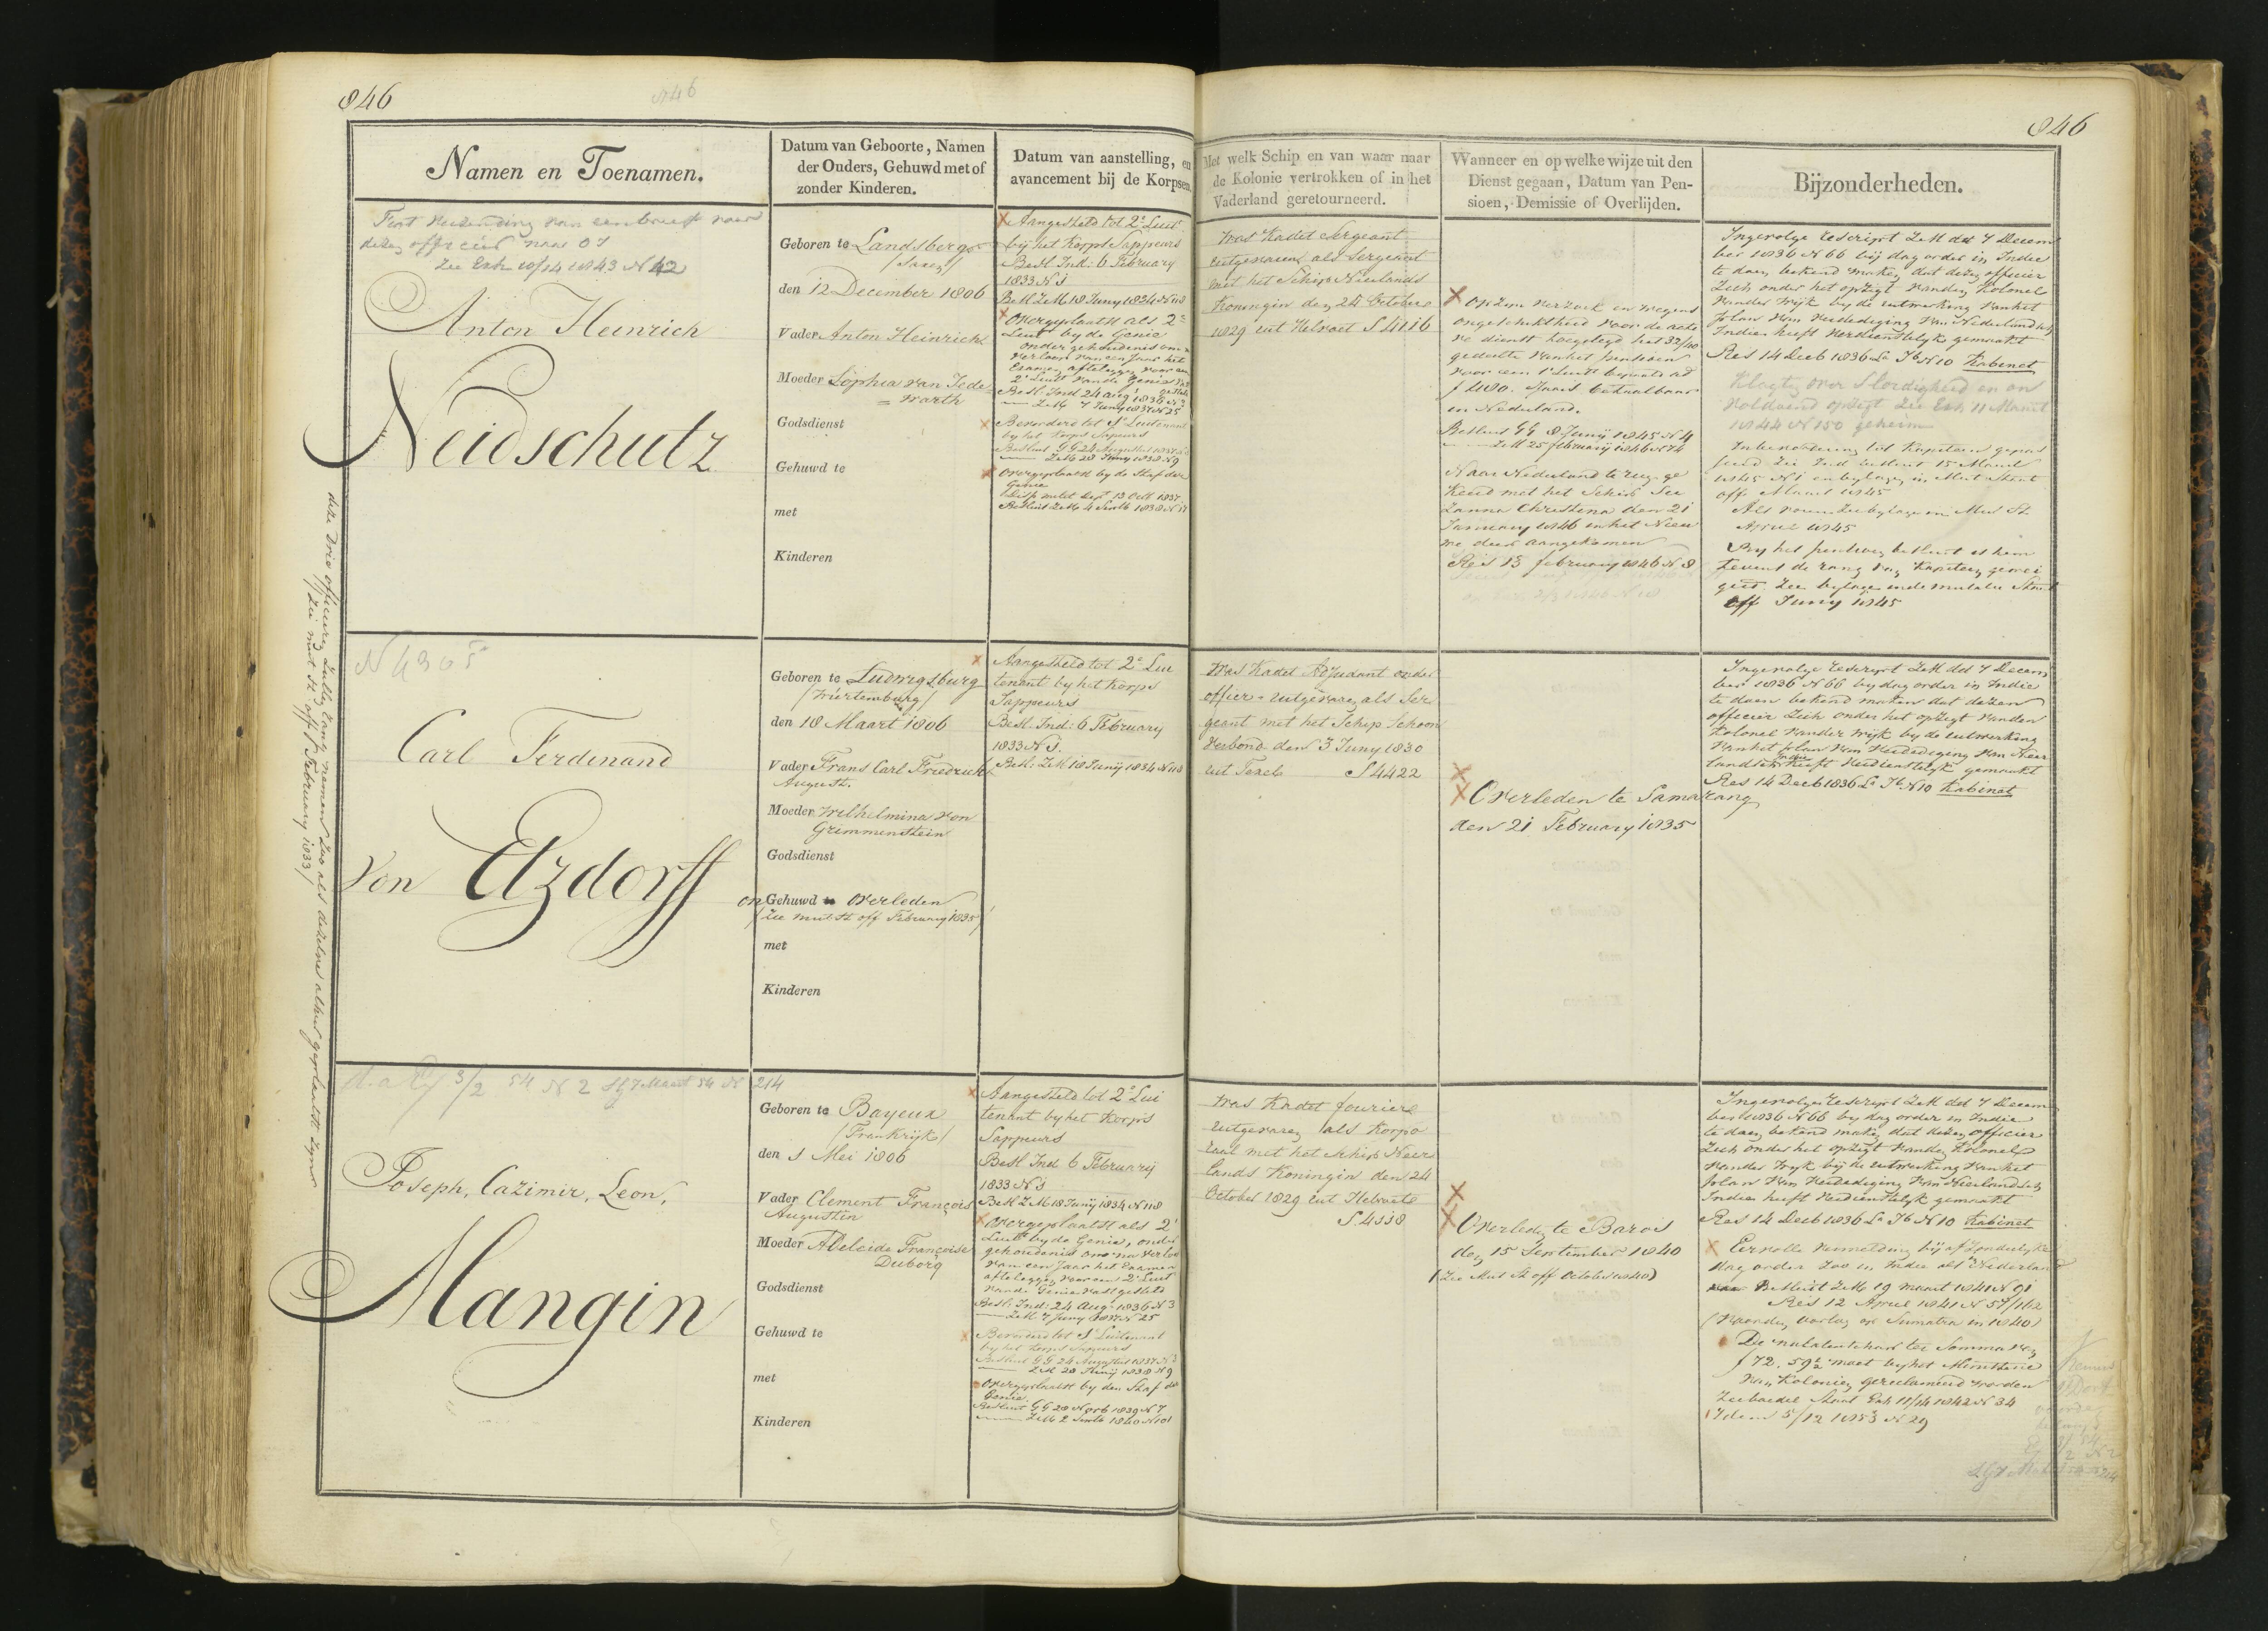 846
846
846
Namen en Toenamen.
Datum van Geboorte, Namen
der Ouders, Gehuwd met of
zonder Kinderen.
Datum van aanstelling, en
avancement bij de Korpsen.
Met welk Schip en van waar naar
de Kolonie vertrokken of in het
Vaderland geretourneerd.
Wanneer en op welke wijze uit den
Dienst gegaan, Datum van Pen-
sioen, Demissie of Overlijden.
Bijzonderheden.
van een brief voor
dezen officier naar OI
Zie Exh 10/14 1843 N 42
Anton Heinrich
Neidschutz
deze drie officieren zullen rang nemen zoo als dezelve alhier geplaatst zijn
/ Zie mut st off February 1833 /
Geboren te Landsberg
/ Saxen /
den 12 December 1806
Vader Anton Heinrich
Moeder Sophia van Tede
= warth
Godsdienst
Gehuwd te
met
Kinderen
Aangesteld tot 2e Luit
bij het Korps Sappeurs
Besl Ind: 6 February
1833 N 1
Besl ZM 18 Juny 1834 N 118
Overgeplaatst als 2e
Luit by de Genie
onder gehoudenis om na
verloop van een Jaar het
Examen afteleggen voor een
2e Luit van de Genie
Besl: Ind 24 aug 1836 N 3
— ZM 7 Juny 1837 N 25
Bevorderd tot 1e Luitenant
by het Korps Sapeurs
Besluit GG 24 Augustus 1837
— ZM 28 Juny 1838 N 9
Overgeplaatst by de Staf der
Genie
Besluit ZM 4 1838 N 17
Was Kadet Sergeant
uitgevaren als Sergeant
met het Schip Neerlands
Koningin den 24 October
1829 uit Helvoet S 4116
Op zyn verzoek en wegens
ongeschiktheid voor de actie
ve dienst toegelegd het 32/40
gedeelte van het pensioen
voor een 1e Luit bepaald ad
f 480. Jaars betaalbaar
in Nederland.
Besluit GG 8 Junij 1845 N 4
— ZM 25 february 1846 N 74
Naar Nederland terug ge
keerd met het Schip Su
zanna Christina den 21
January 1846 in het Nieu
we diep aangekomen
Res 13 february 1846 N 8
Ingevolge rescript ZM dd 7 Decem
ber 1836 N 66 bij dag order in Indie
te doen bekend maken, dat dezen officier
zich onder het opzigt van den Kolonel
van der Wijk by de uitwerking van het
plan van verdediging van Nederlandsch
Indien heeft verdienstelyk gemaakt
Res 14 Decb 1836 La Jb N 10 Kabinet
Klagten over Slordigheid en on
voldoend opzigt Zie Exh 11 Maart
1844 N 150 geheim
Inbevordering tot Kapitein gepas
seerd Zie Ind besluit 15 Maart
1845 N 1 en bylagen in Mut Staat
off Maart 1845
Als voren Zie bylage in Mut St
April 1845
By het pensioen besluit is hem
tevens de rang van Kapitein gewei
gerd Zie bylage in de mutatie Staat
off Juny 1845
N 4305
Carl Ferdinand
Von Etzdorff
Geboren te Ludwigsburg
/ Wurtemburg /
den 18 Maart 1806
Vader Frans Carl Friedrich
August.
Moeder Wilhelmina von
Grimmenstein
Godsdienst
on Gehuwd overleden
/ Zie mut st off February 1835 /
met
Kinderen
Aangesteld tot 2e Lui
tenant by het Korps
Sappeurs
Besl. Ind: 6 February
1833 N 1.
Besl: ZM 18 Junij 1834 N 118
Was Kadet Adjudant onder
officier uitgevaren als Ser
geant met het Schip Schoon
verbond den 3 Juny 1830
uit Texel S 4422
Overleden te Samarang
den 21 February 1835
Ingevolge rescript ZM dd 7 Decem
ber 1836 N 66 by dag order in Indie
te doen bekend maken dat dezen
officier zich onder het opzigt van den
Kolonel van der Wijk by de uitwerking
van het plan van verdediging van Neer
landsch Indie heeft verdienstelyk gemaakt
Res 14 Decb 1836 La Jb N 10 Kabinet
3/2 54 N 2 7 Maart 54 N 214
Joseph, Cazimir, Leon,
Mangin
Geboren te Bayeux
/ Frankrijk /
den 1 Mei 1806
Vader Clement François
Augustin
Moeder Adelaide Françoise
Duborg
Godsdienst
Gehuwd te
met
Kinderen
Aangesteld tot 2e Lui
tenant by het Korps
Sappeurs
Besl Ind 6 February
1833 N 1
Besl ZM 18 Junij 1834 N 118
Overgeplaatst als 2e
Luit by de Genie, onder
gehoudenis om na verloop
van een Jaar het Examen
afteleggen voor een 2e Luit
van de Genie vastgesteld
Besl: Ind: 24 Aug: 1836 N 3
— ZM 7 Juny 1837 N 25
Bevorderd tot 1e Luitenant
by het Korps Sapeurs
Besluit GG 24 Augustus 1837 N 3
— ZM 28 Junij 1838 N 9
Overgeplaatst by den Staf der
Genie
Besluit GG 28 Novb 1839 N 7
— ZM 2 1840 N 101
Was Kadet fourier
uitgevaren als Korpo
raal met het Schip Neer
lands Koningin den 24
October 1829 uit Helvoet
S 4338
Overleden te Baros
den 15 September 1840
(Zie Mut St off October 1840)
Ingevolge rescript ZM dd 7 Decem
ber 1836 N 66 by dag order in Indie
te doen bekend maken dat dezen officier
zich onder het opzigt van den Kolonel
van der Wyk bij de uitwerking van het
plan van verdediging van Neerlandsch
Indien heeft verdienstelyk gemaakt
Res 14 Decb 1836 La Jb N 10 Kabinet
Eervolle vermelding bij afzonderlyke
dag order zoo in Indie als Nederland
Besluit ZM 19 maart 1841 N 91
Res 12 April 1841 N 57/162
( oorlog op Sumatra in 1840)
De nalatenschap ter Somma van
f 72.59½ moet by het Ministerie
van Kolonien gereclameerd worden
Exh 11/14 1842 N 34
Idem 5/12 1853 N 29